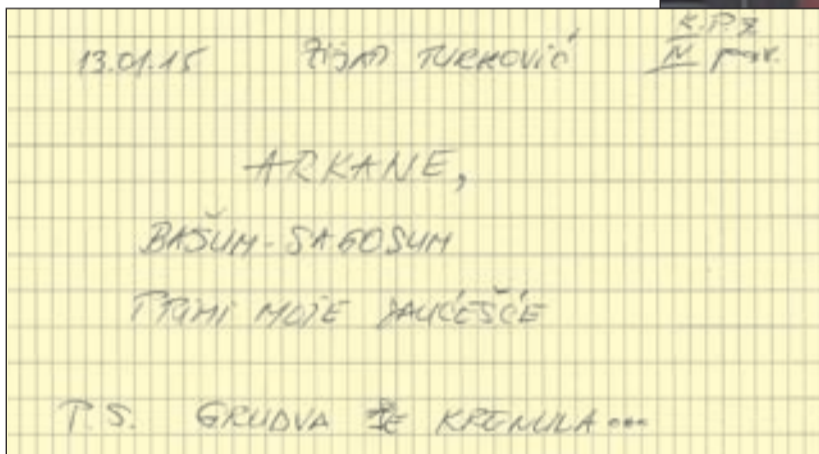 K.P.Z
13.01.15 ZIJAD TURKOVIĆ IV pav.
ARKANE,
BAŠUM-SAGOSUM
PRIMI MOJE SAUĆEŠĆE
P.S. GRUDVA JE KRENULA...